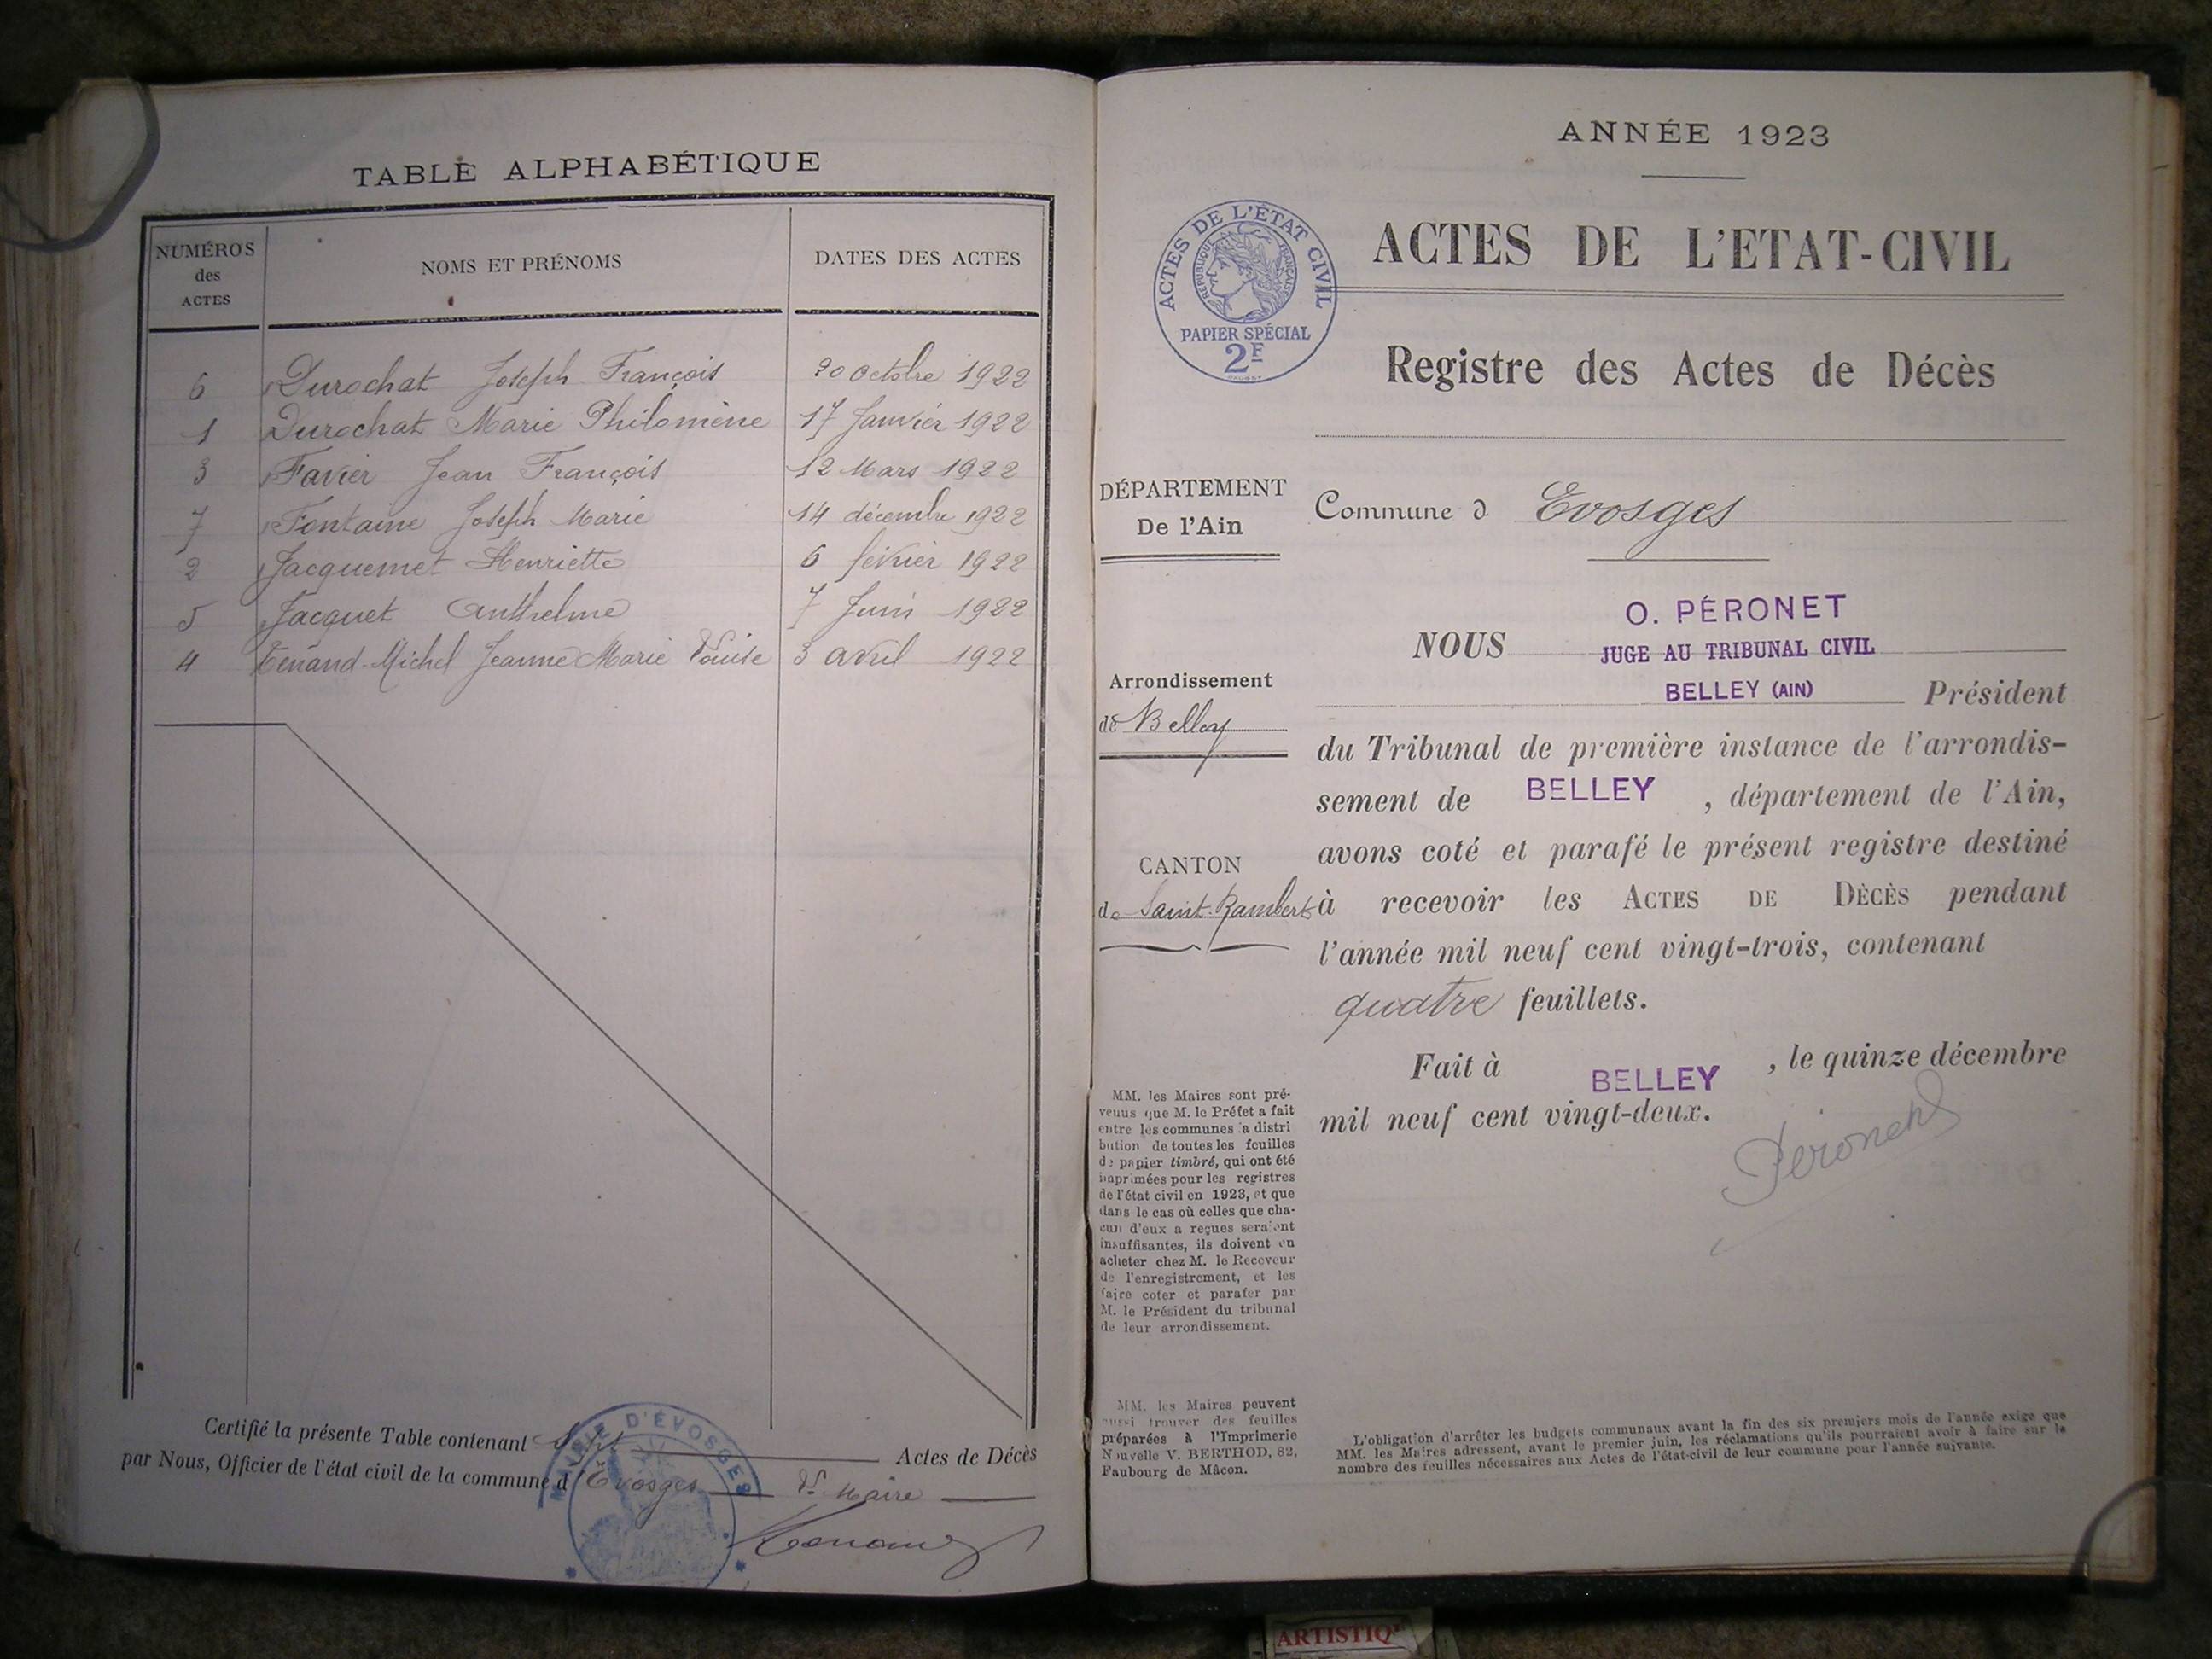 TABLE ALPHABÉTIQUE
NUMÉROS
des
ACTES
NOMS ET PRÉNOMS
DATES DES ACTES
6 Durochat Joseph François 20 Octobre 1922
1 Durochat Marie Philomène 17 Janvier 1922
3 Favier Jean François 12 Mars 1922
7 Fontaine Joseph Marie 14 décembre 1922
2 Jacquemet Henriette 6 février 1922
5 Jacquet Anthelme 7 Juin 1922
4 Tenand-Michel Jeanne Marie Louise 3 avril 1922
Certifié la présente Table contenant Sept Actes de Décès
par Nous, Officier de l'état civil de la commune d'Évosges Le Maire
MAIRIE D'ÉVOSGES
Tenand
ANNÉE 1923
ACTES DE L'ÉTAT CIVIL
RÉPUBLIQUE FRANÇAISE
PAPIER SPÉCIAL
2F
ACTES DE L'ETAT-CIVIL
Registre des Actes de Décès
DÉPARTEMENT
De l'Ain
Commune d Evosges
Arrondissement
de Belley
CANTON
de Saint-Rambert
O. PÉRONET
NOUS JUGE AU TRIBUNAL CIVIL
BELLEY (AIN) Président
du Tribunal de première instance de l'arrondis-
sement de BELLEY , département de l'Ain,
avons coté et parafé le présent registre destiné
à recevoir les ACTES DE DÉCÈS pendant
l'année mil neuf cent vingt-trois, contenant
quatre feuillets.
Fait à BELLEY , le quinze décembre
mil neuf cent vingt-deux.
Péronet
MM. les Maires sont pré-
venus que M. le Préfet a fait
entre les communes la distri
bution de toutes les feuilles
de papier timbré, qui ont été
imprimées pour les registres
de l'état civil en 1923, et que
dans le cas où celles que cha-
cun d'eux a reçues seraient
insuffisantes, ils doivent en
acheter chez M. le Receveur
de l'enregistrement, et les
faire coter et parafer par
M. le Président du tribunal
de leur arrondissement.
MM. les Maires peuvent
aussi trouver des feuilles
préparées à l'Imprimerie
Nouvelle V. BERTHOD, 82,
Faubourg de Mâcon.
L'obligation d'arrêter les budgets communaux avant la fin des six premiers mois de l'année exige que
MM. les Maires adressent, avant le premier juin, les réclamations qu'ils pourraient avoir à faire sur le
nombre des feuilles nécessaires aux Actes de l'état-civil de leur commune pour l'année suivante.
ARTISTIQ